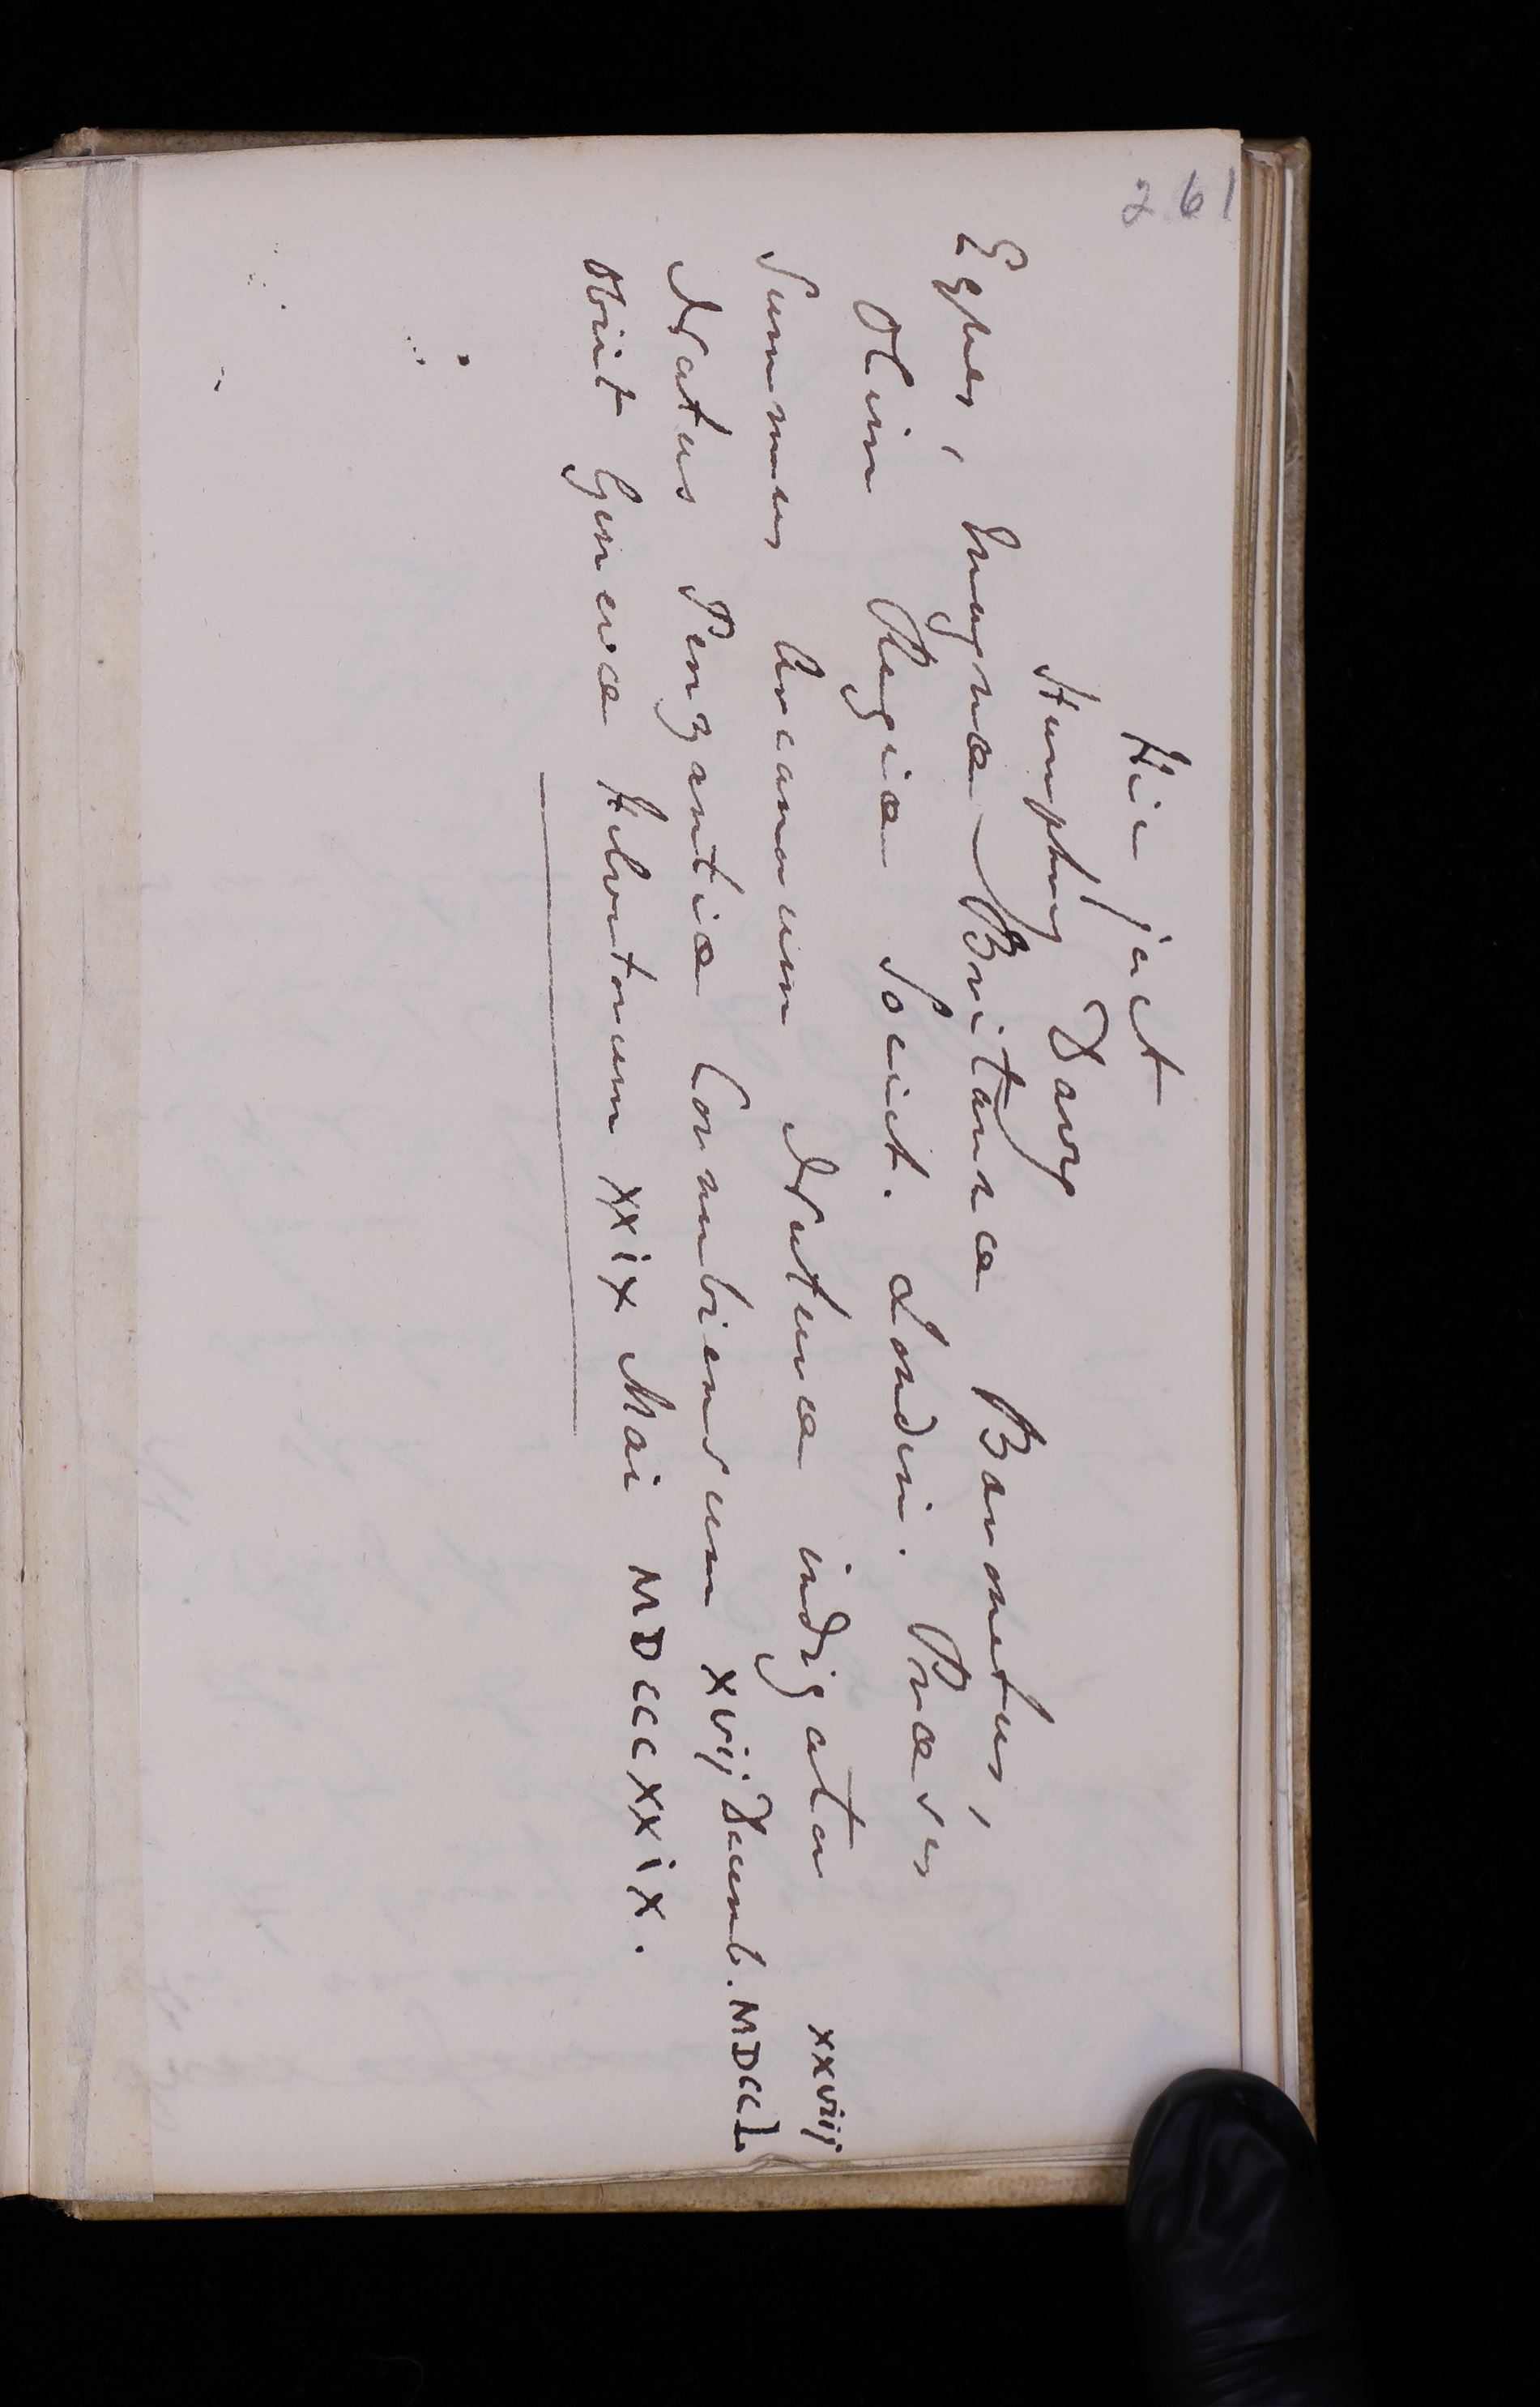 261
Hic jacet
Humphry Davy
Eques, Magnæ Britannæ Baronetus,
Olim Regiæ Societ. Londin. Præses
Summus Arcanorum Naturæ indigator
Natus Penzantiæ Cornubiensium xvij Decemb. MDCCL
xxviij
Obiit Genevæ Helvetorum xxix Mai MDCCCXXIX.